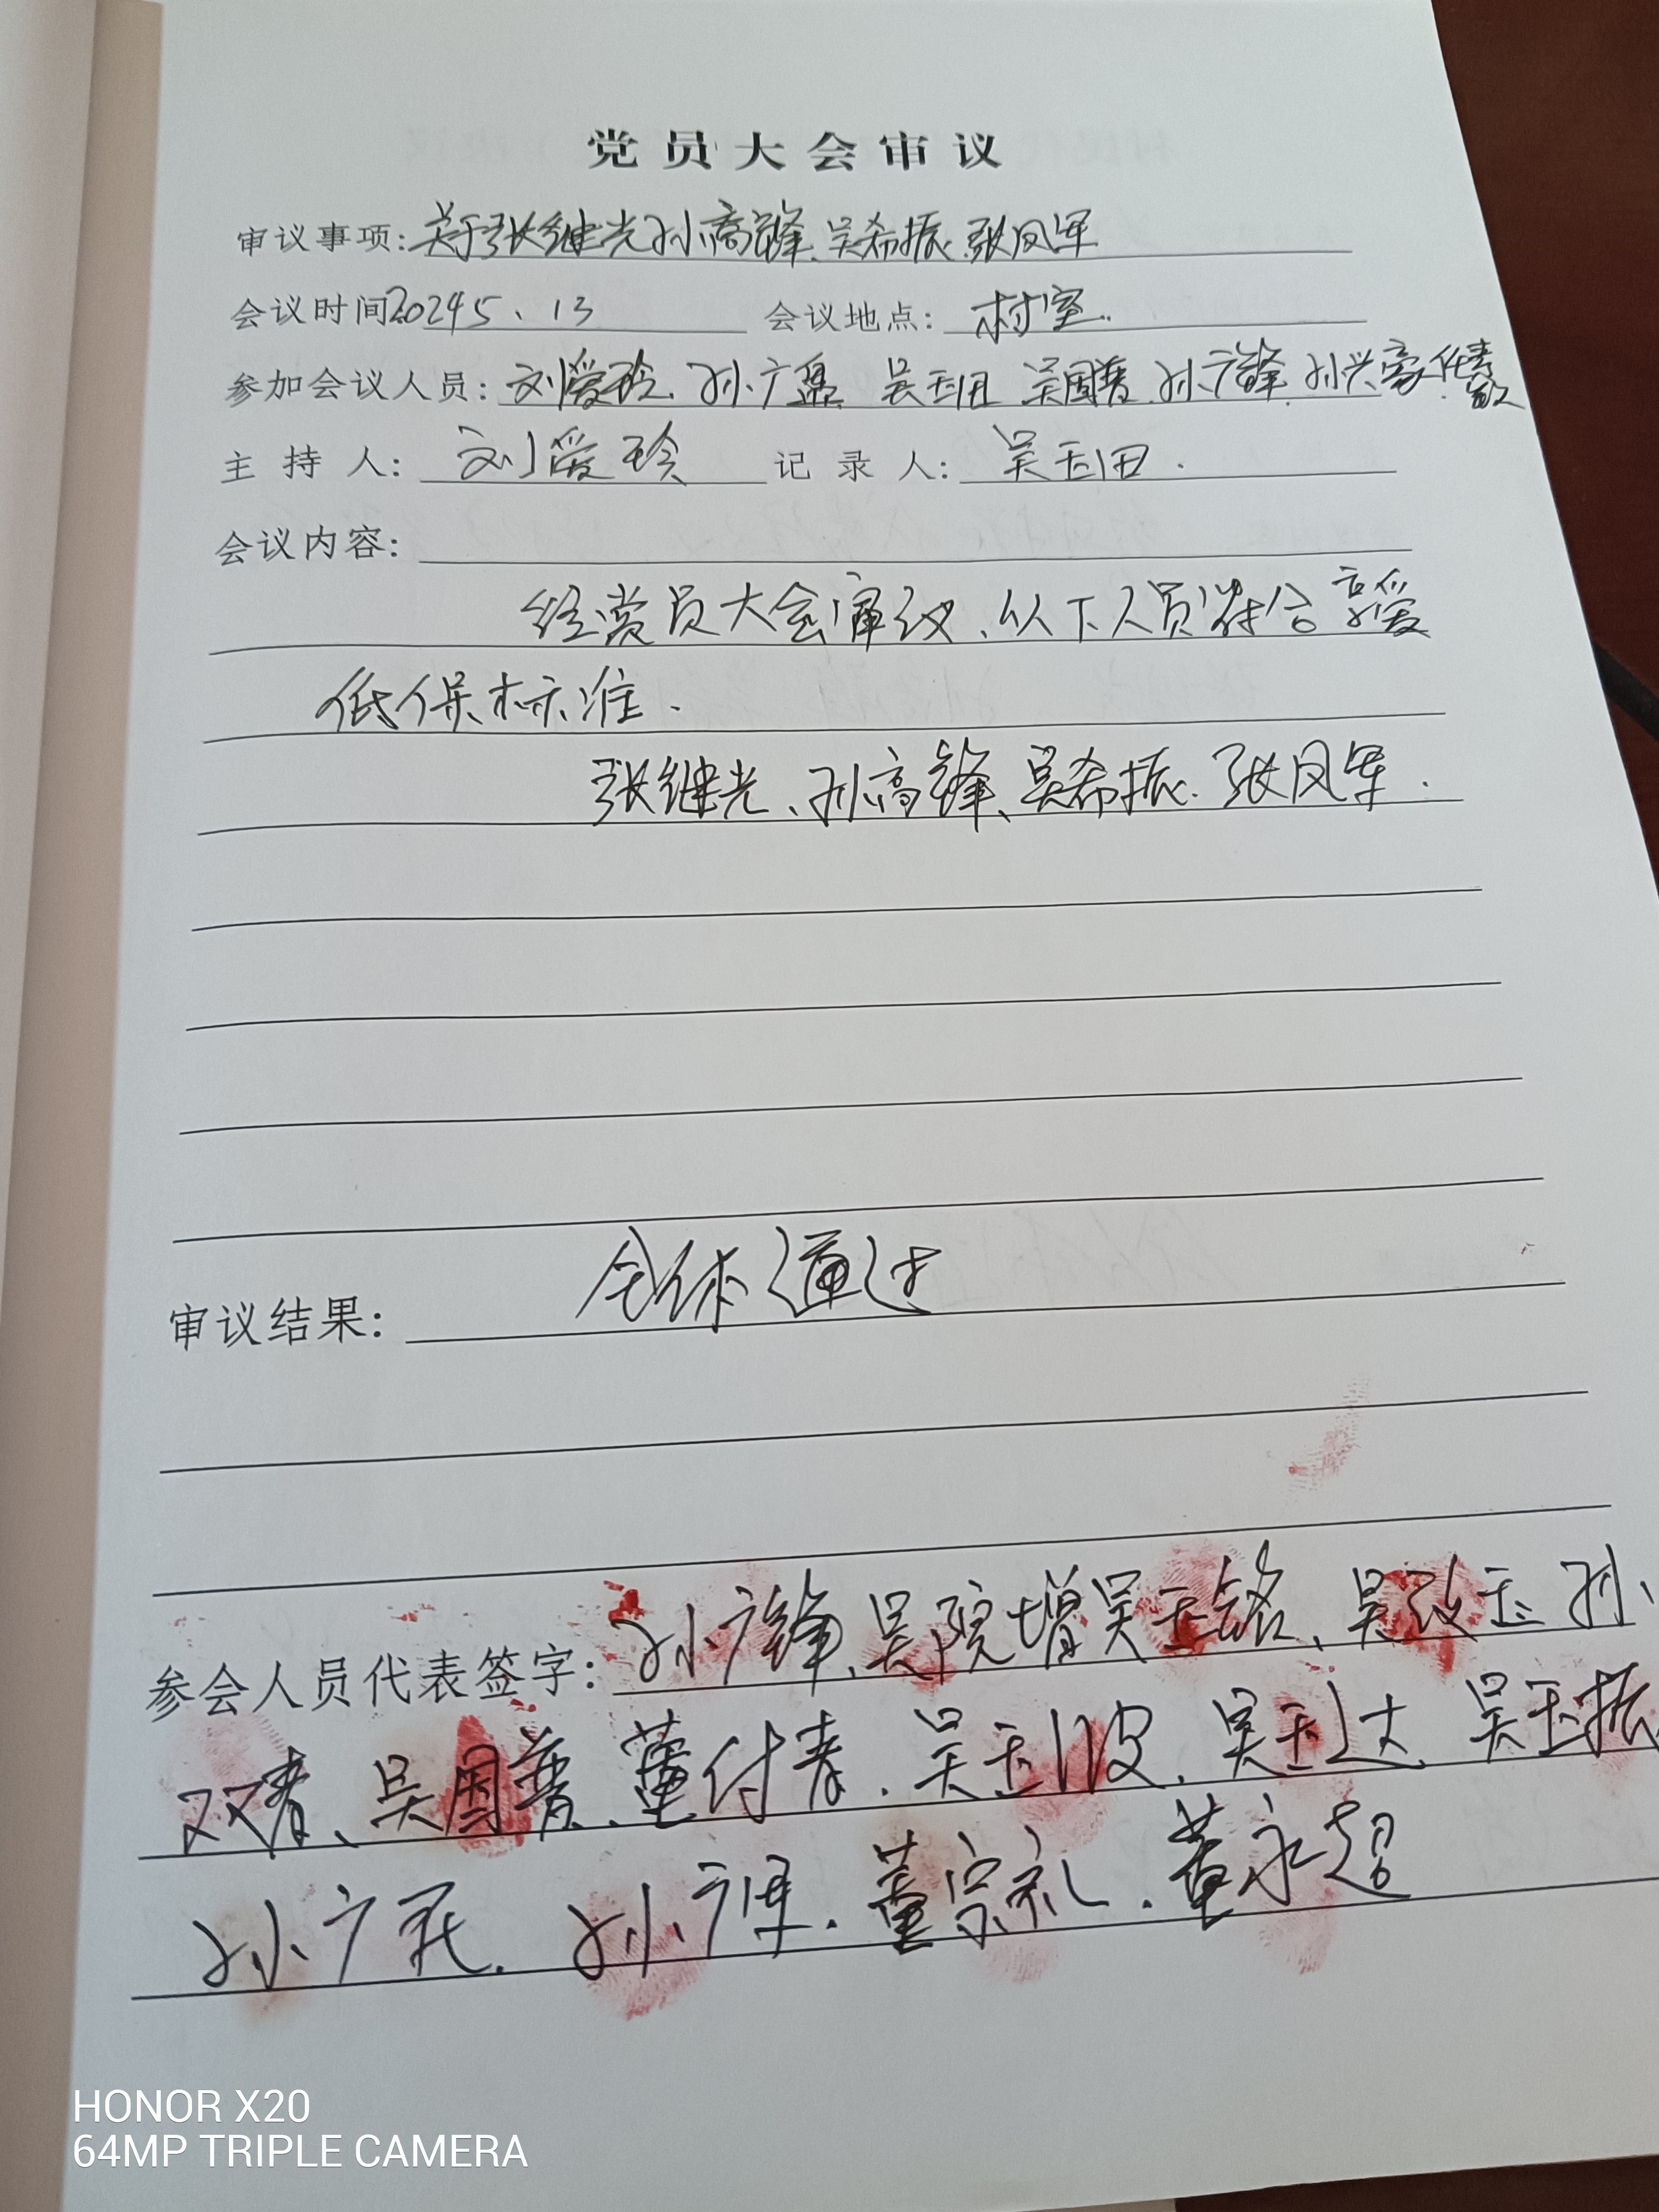 党员大会审议
审议事项:关于张继光孙高锋、吴希振、张凤军
会议时间2024 5、13 会议地点:村室.
参加会议人员:刘爱玲、孙广 吴玉田 吴国普、孙广锋、孙兴豪、
主持人:刘爱玲 记录人:吴玉田.
会议内容:
经党员大会审议、以下人员符合享受
低保标准.
张继光、孙高锋、吴希振、张凤军.
审议结果: 全体通过
参会人员代表签字:孙广锋、吴院增 吴玉铭、吴改玉 孙
双春、吴国普、董付春.吴玉波、吴玉达、吴玉振
孙广民、孙广  .董宗礼.董永超
HONOR X20
64MP TRIPLE CAMERA